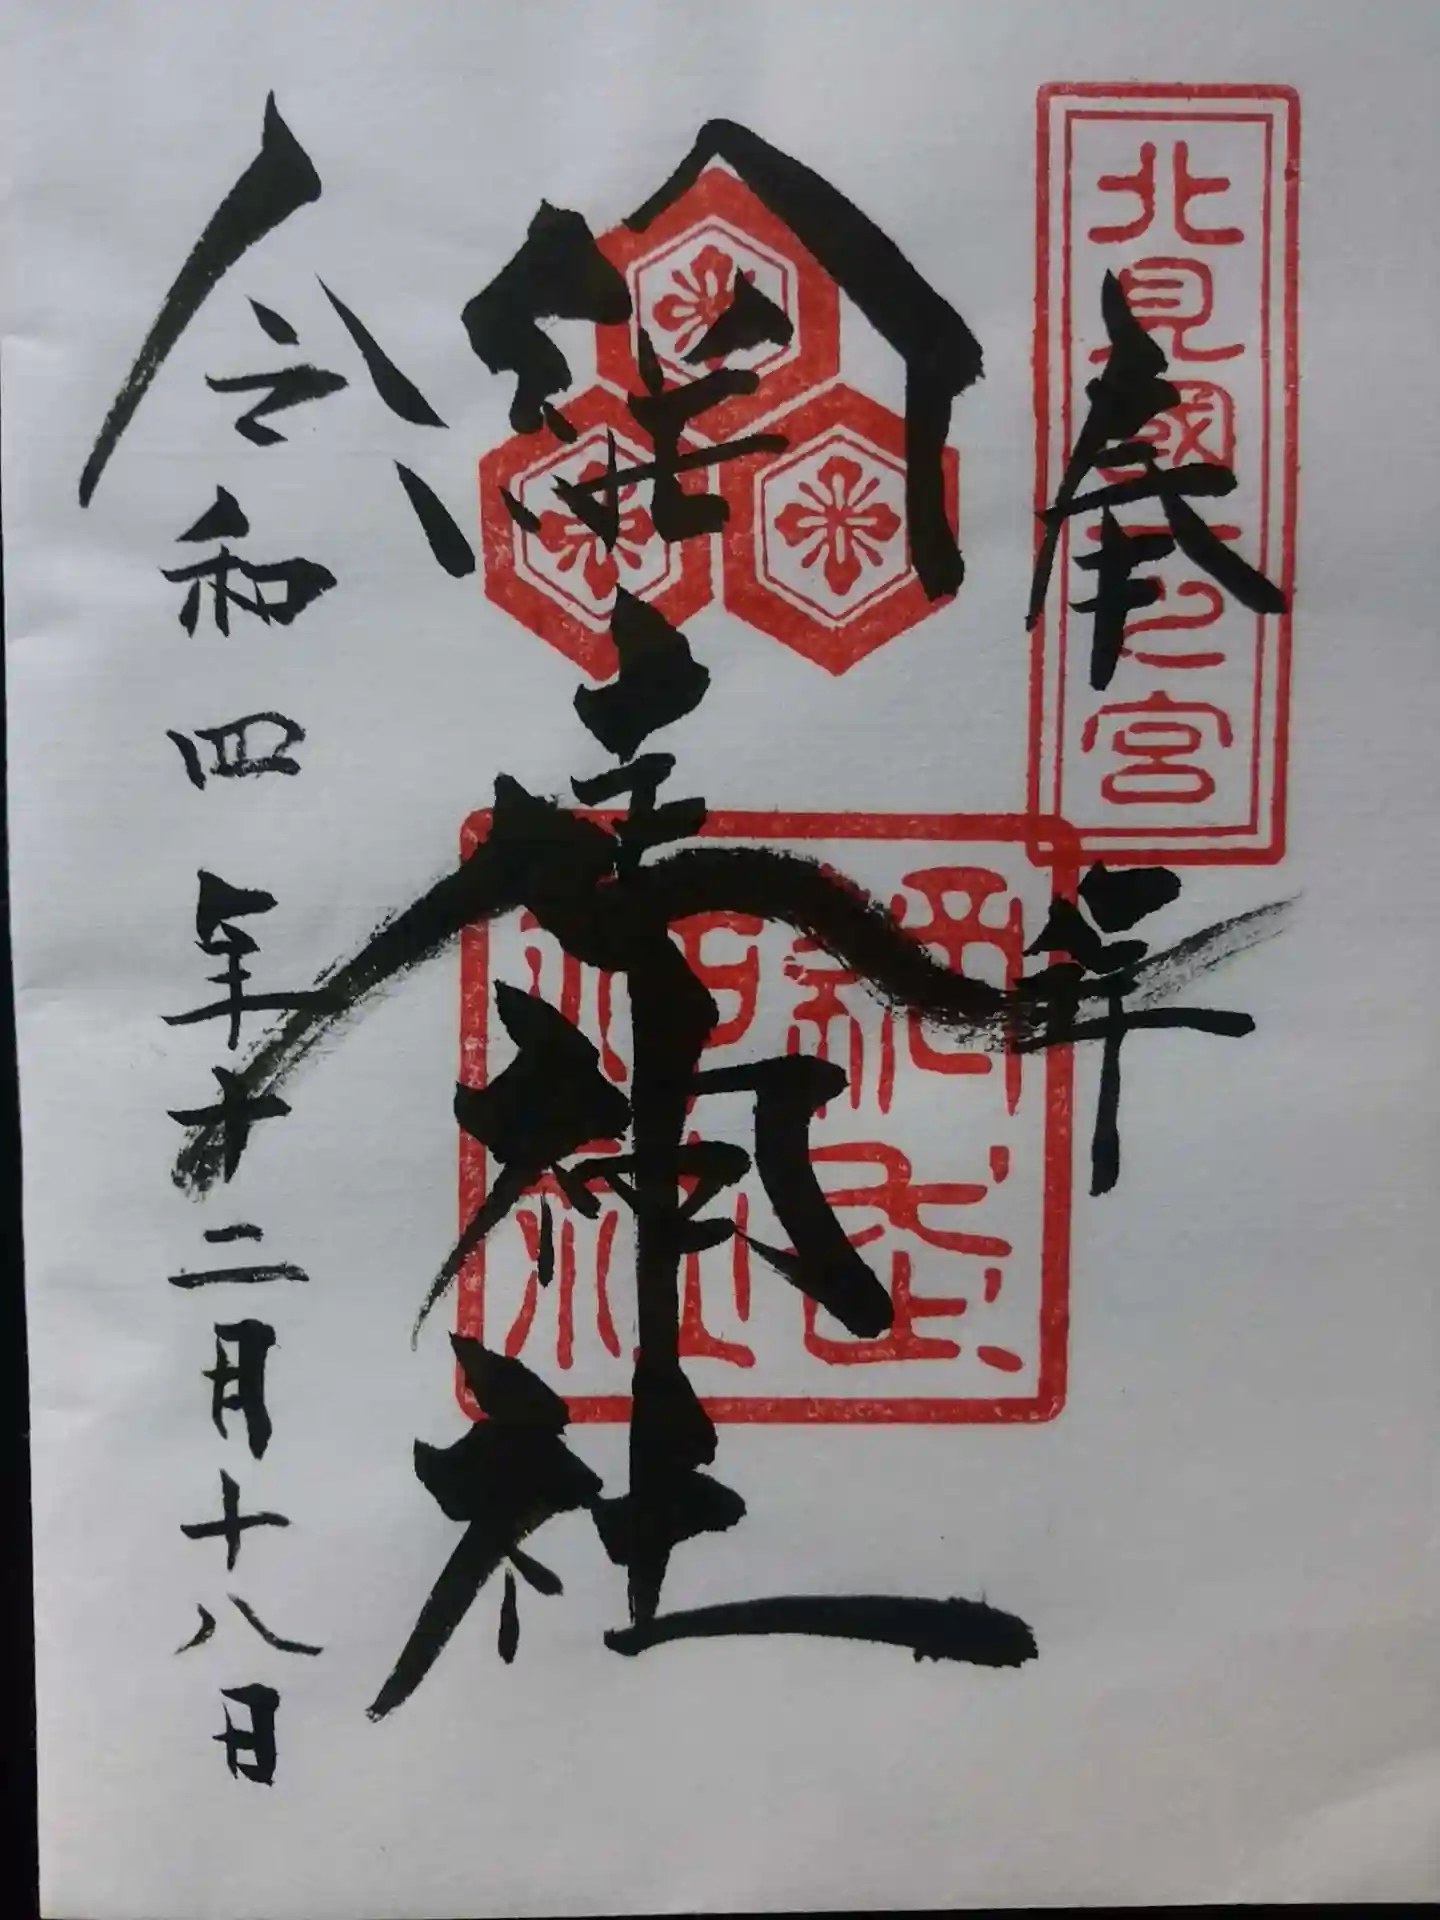 奉拝
北見國一之宮
網走神社
網走神社
令和四年十二月十八日